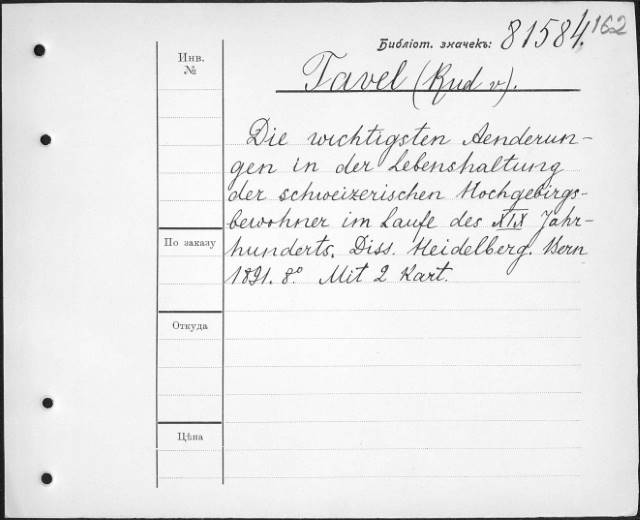 Библіот. значекъ: 81584. 162
Инв. №
Tavel (Rud v).
Die wichtigsten Aenderun-
gen in der Lebenshaltung
der schweizerischen Hochgebirgs-
bewohner im Laufe des XIX Jahr-
По заказу
hunderts. Diss. Heidelberg. Bern
1891. 8º Mit 2 Kart.
Откуда
Цѣна